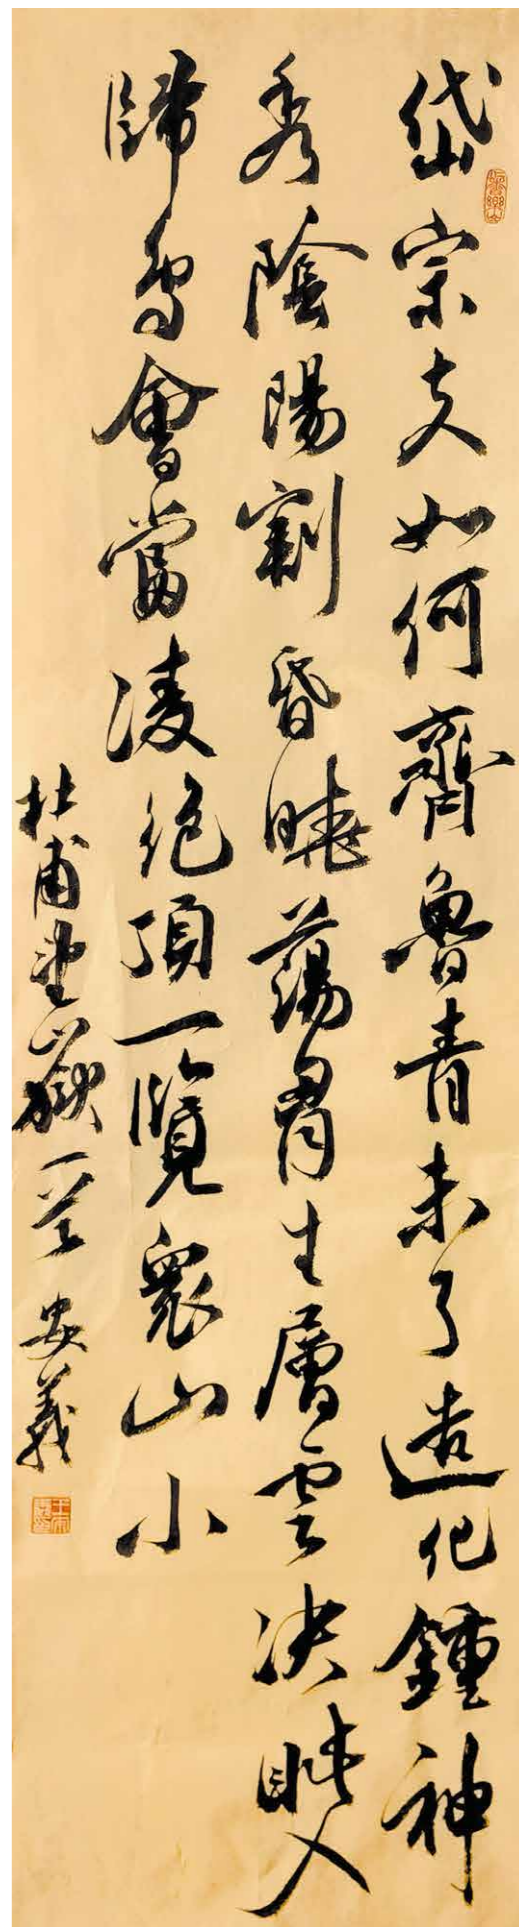 岱宗夫如何齊魯青未了造化鍾神
秀陰陽割昏曉蕩胷生層雲決眥入
歸鳥會當凌絕頂一覽衆山小
杜甫望嶽一首 安義